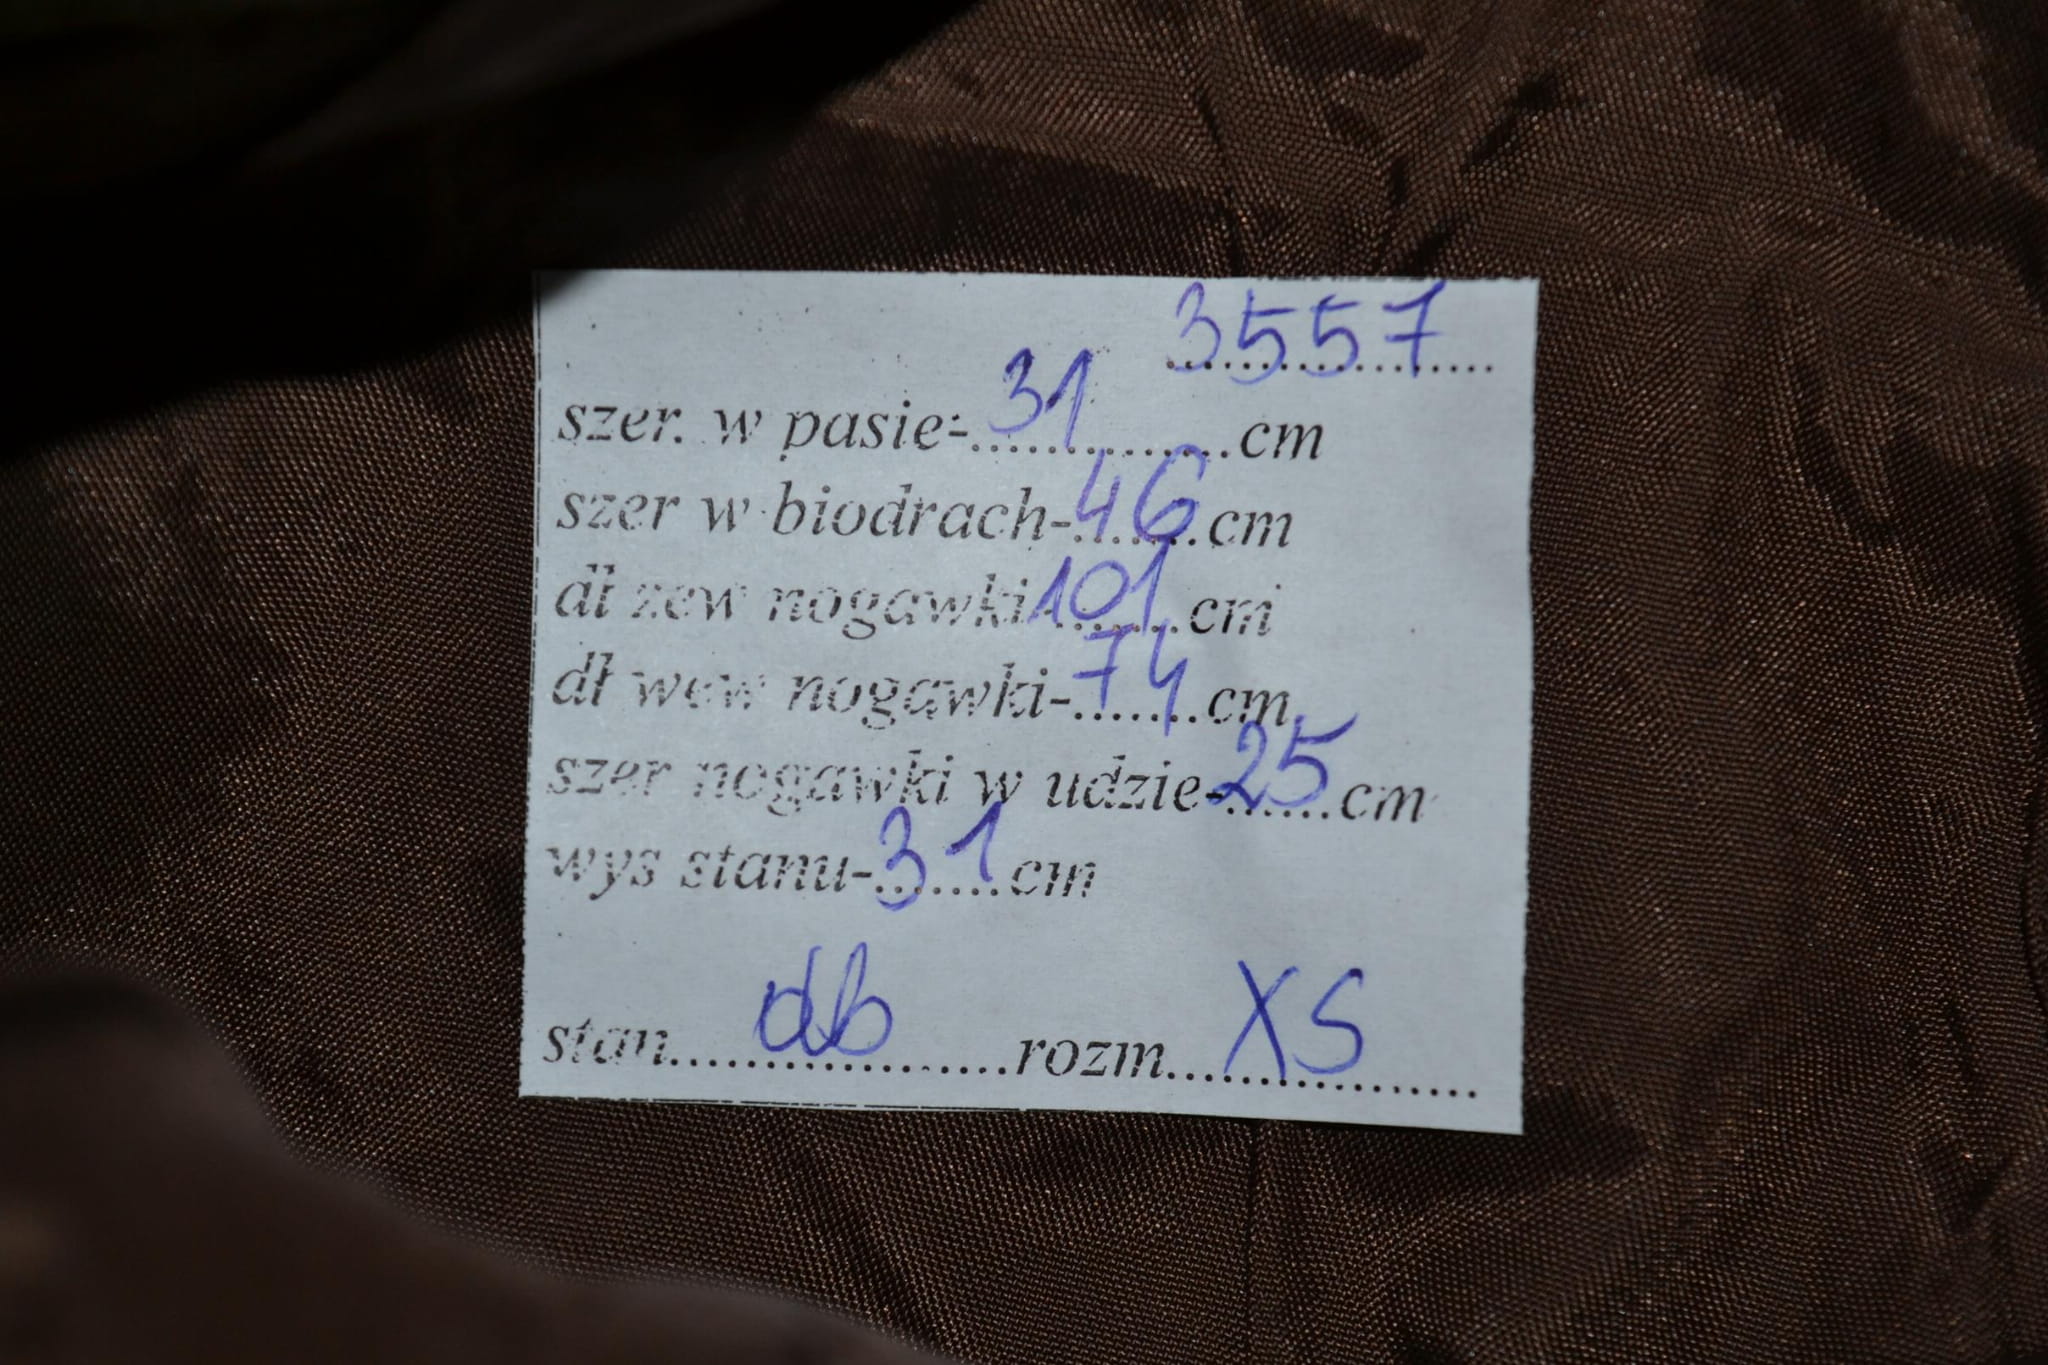 3557
szer. w pasie-31cm
szer w biodrach-46cm
dł zew nogawki-101cm
dł wew nogawki-74cm
szer nogawki w udzie-25cm
wys stanu-31cm
stan db rozm XS